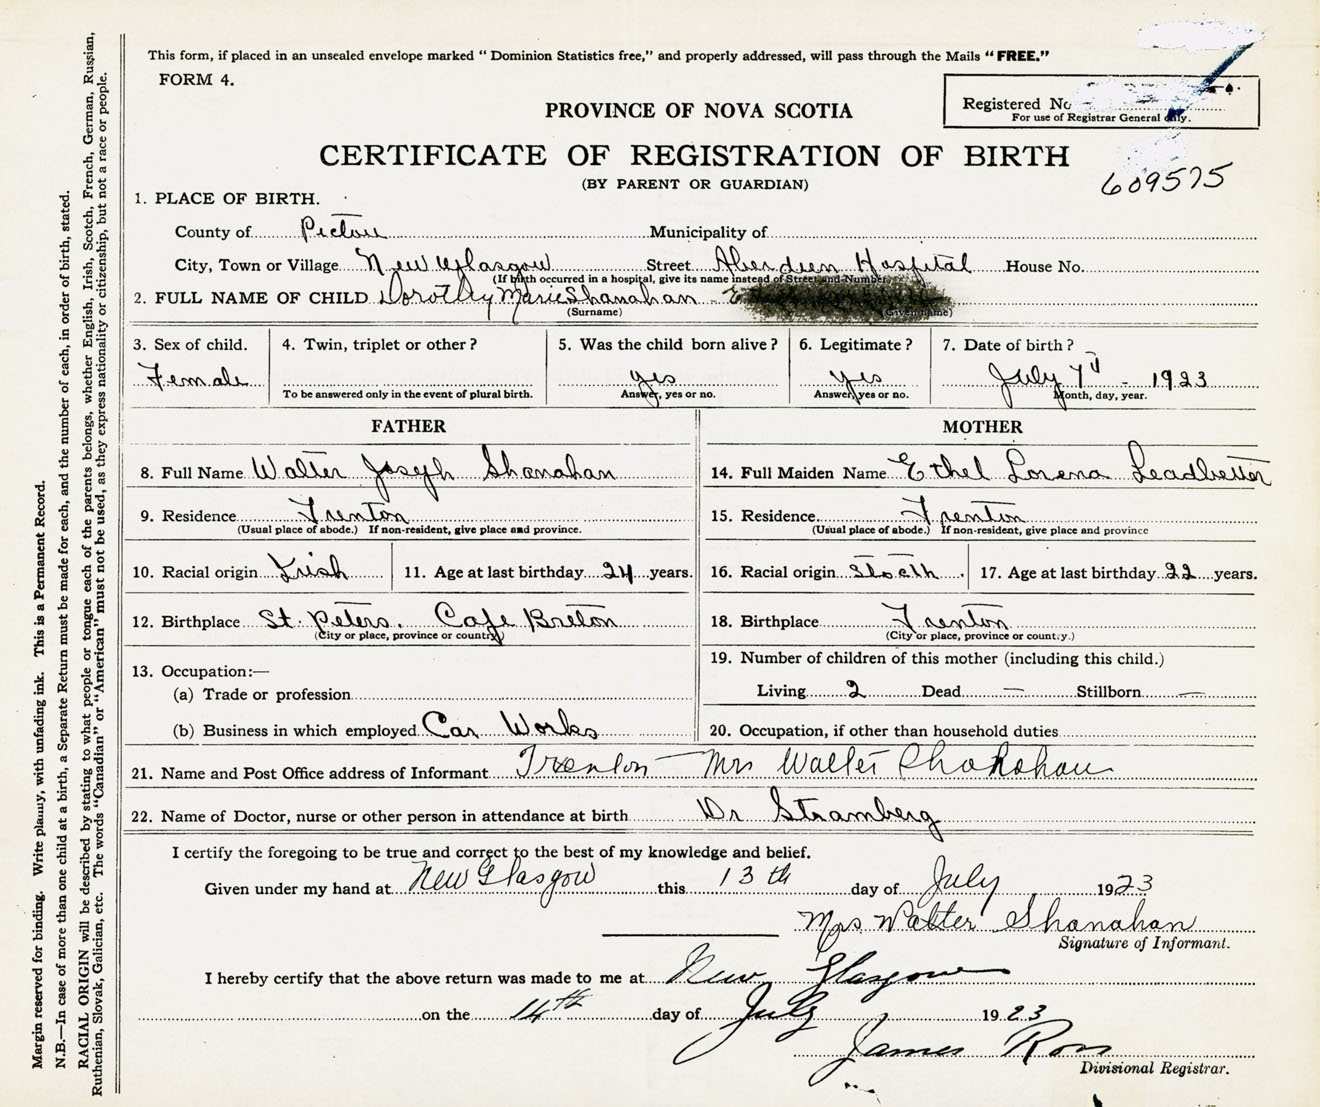 This form, if placed in an unsealed envelope marked " Dominion Statistics free," and properly addressed, will pass through the Mails "FREE."
FORM 4.
PROVINCE OF NOVA SCOTIA
Registered No
For use of Registrar General only.
CERTIFICATE OF REGISTRATION OF BIRTH
(BY PARENT OR GUARDIAN)
609575
1. PLACE OF BIRTH.
County of Pictou Municipality of
City, Town or Village New Glasgow Street Aberdeen Hospital House No.
(If birth occurred in a hospital, give its name instead of Street and Number)
2. FULL NAME OF CHILD Dorothy Marie Shanahan
(Surname) (Given name)
3. Sex of child. 4. Twin, triplet or other? 5. Was the child born alive? 6. Legitimate? 7. Date of birth?
Female yes yes July 7th - 1923
To be answered only in the event of plural birth. Answer, yes or no. Answer, yes or no. Month, day, year.
FATHER MOTHER
8. Full Name Walter Joseph Shanahan 14. Full Maiden Name Ethel Lorena Leadbetter
9. Residence Trenton 15. Residence Trenton
(Usual place of abode.) If non-resident, give place and province. (Usual place of abode.) If non-resident, give place and province
10. Racial origin Irish 11. Age at last birthday 24 years. 16. Racial origin 17. Age at last birthday 22 years.
12. Birthplace St. Peters, Cape Breton 18. Birthplace Trenton
(City or place, province or country) (City or place, province or country.)
13. Occupation:— 19. Number of children of this mother (including this child.)
(a) Trade or profession Living 2 Dead — Stillborn —
(b) Business in which employed Car Works 20. Occupation, if other than household duties
21. Name and Post Office address of Informant Trenton — Mrs Walter Shanahan
22. Name of Doctor, nurse or other person in attendance at birth Dr Stramberg
I certify the foregoing to be true and correct to the best of my knowledge and belief.
Given under my hand at New Glasgow this 13th day of July 1923
Mrs. Walter Shanahan
Signature of Informant.
I hereby certify that the above return was made to me at New Glasgow
on the 14th day of July 1923
James Ross
Divisional Registrar.
Margin reserved for binding. Write plainly, with unfading ink. This is a Permanent Record.
N.B.—In case of more than one child at a birth, a Separate Return must be made for each, and the number of each, in order of birth, stated.
RACIAL ORIGIN will be described by stating to what people or tongue each of the parents belongs, whether English, Irish, Scotch, French, German, Russian,
Ruthenian, Slovak, Galician, etc. The words "Canadian" or "American" must not be used, as they express nationality or citizenship, but not a race or people.